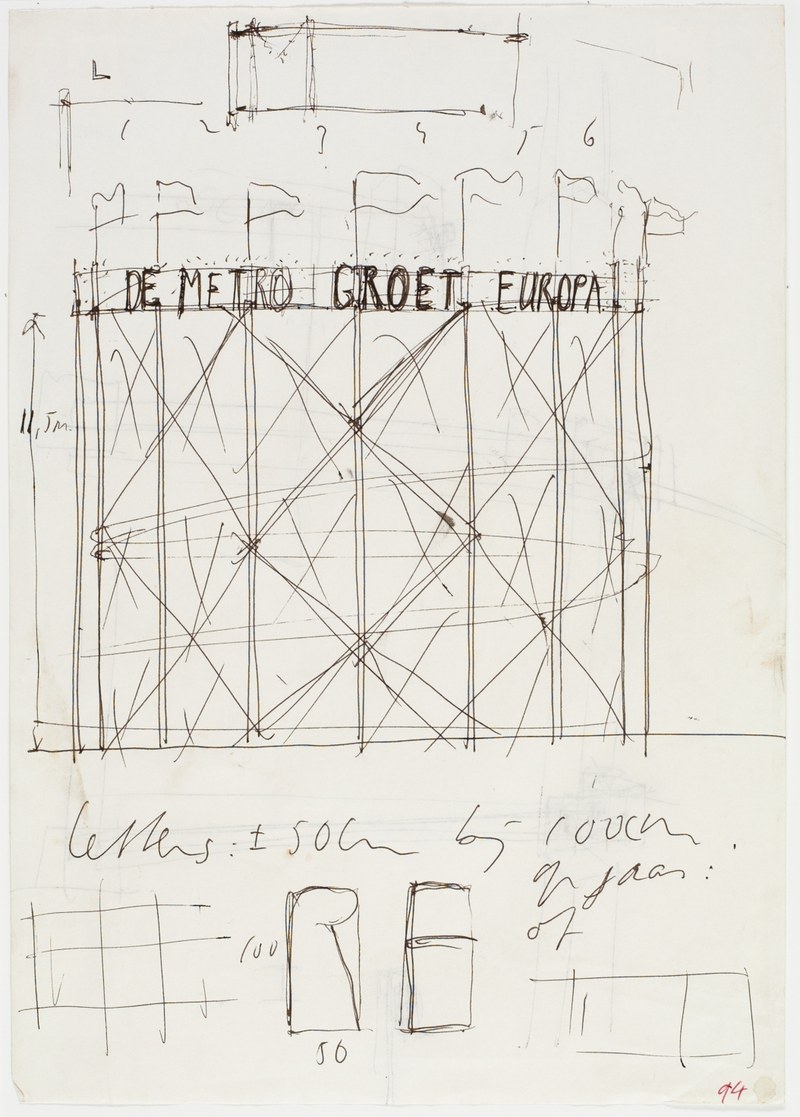 L
1 2 3 4 5 6
DE METRO GROET EUROPA
11,5m.
letters: ± 50cm bij 100cm.
op gaas:
of
100 R E
50
94